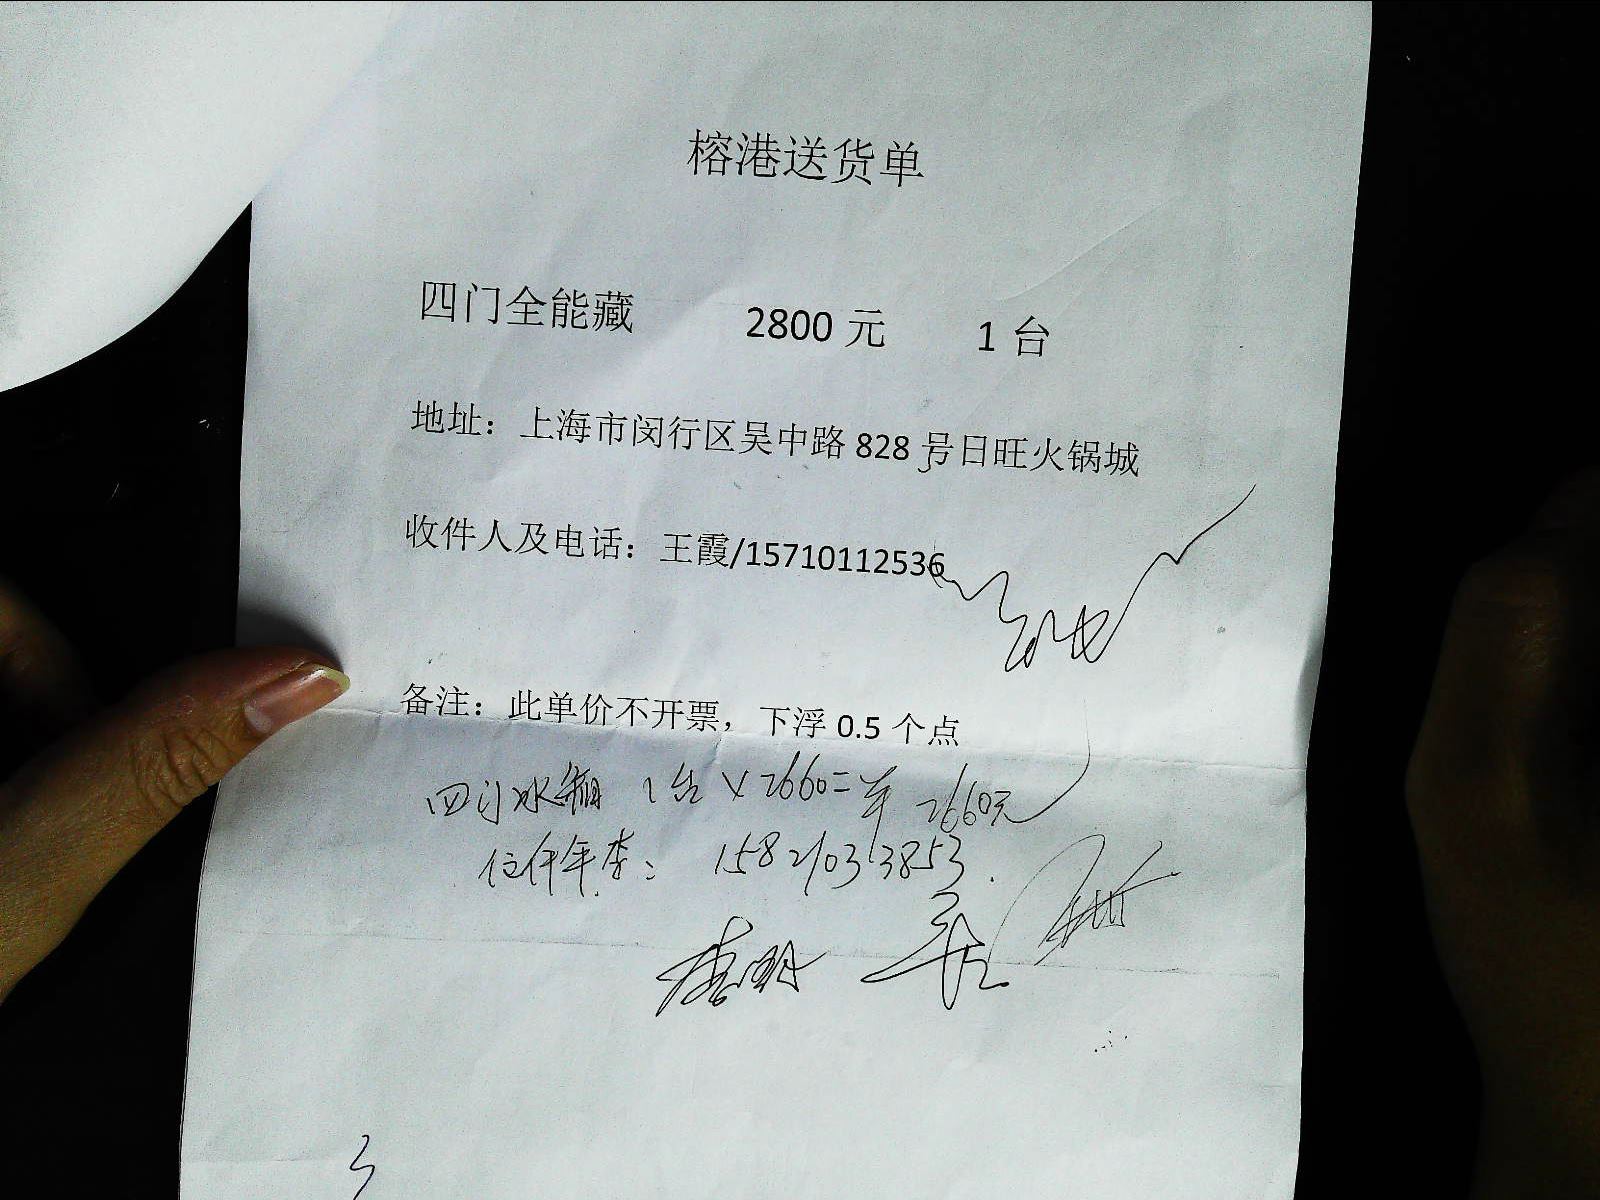 榕港送货单
四门全能藏 2800 元 1 台
地址：上海市闵行区吴中路 828 号日旺火锅城
收件人及电话：王霞/15710112536
备注：此单价不开票，下浮 0.5 个点
四门冰箱 1台 × 2660＝ 2660元
15821033853.